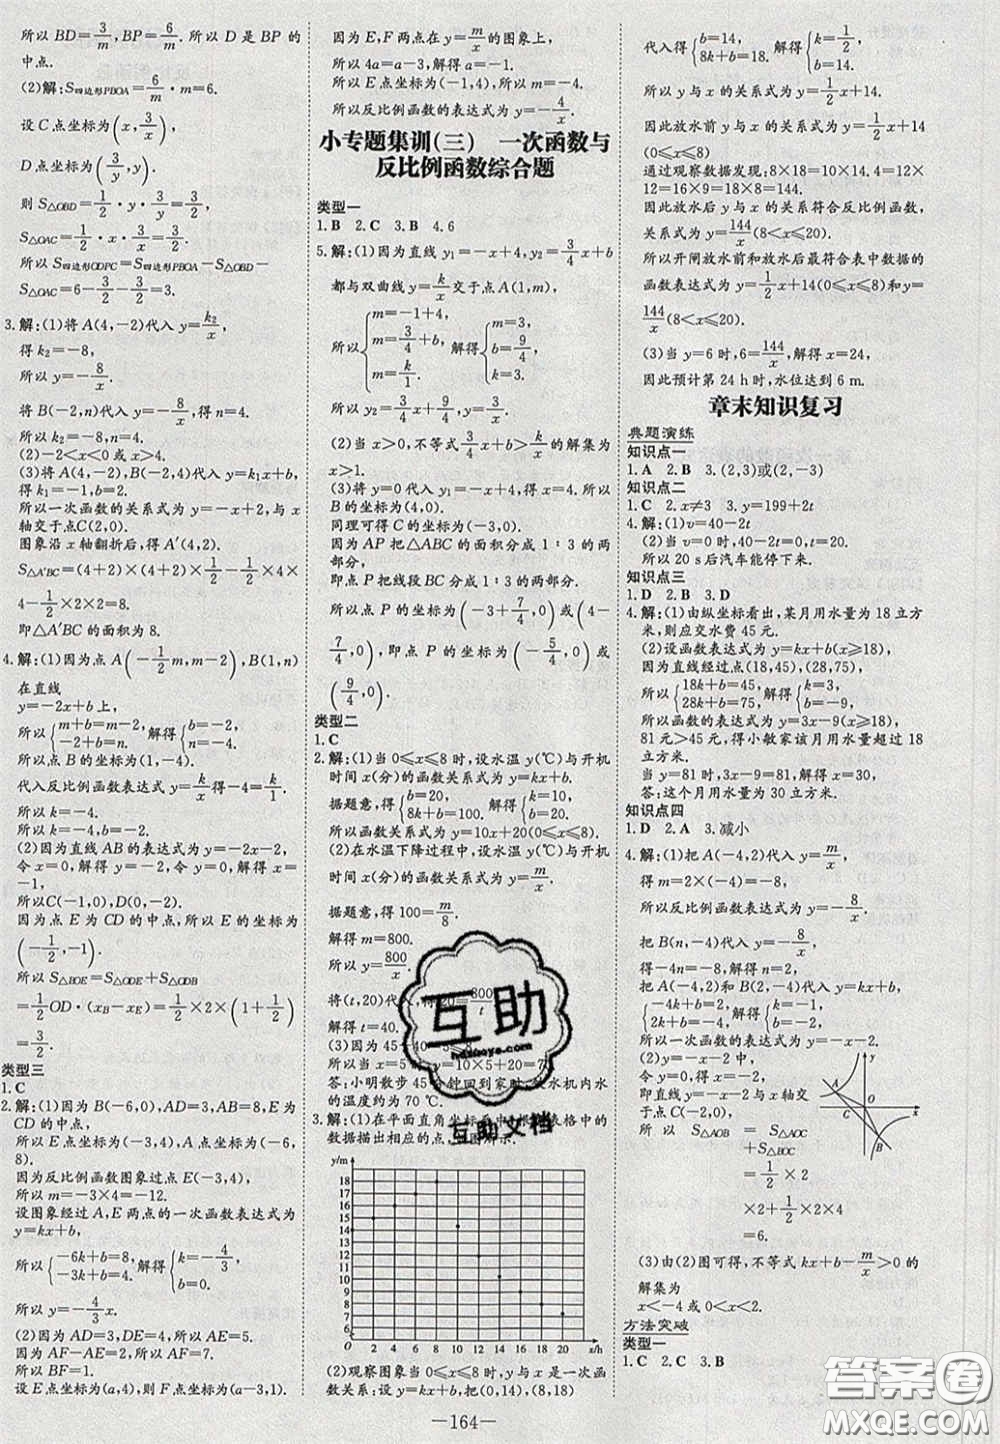 所以 BD=3/m, BP=6/m. 所以 D 是 BP 的
中点.
(2)解:S四边形PBOA=6/m·m=6.
设 C 点坐标为(x, 3/x),
D 点坐标为(3/y, y),
则 S△OBD=1/2·y·3/y=3/2,
S△OAC=1/2·x·3/x=3/2.
所以 S四边形ODPC=S四边形PBOA-S△OBD-
S△OAC=6-3/2-3/2=3.
3.解:(1)将 A(4,-2)代入 y=k₂/x,
得 k₂=-8,
所以 y=-8/x.
将 B(-2,n)代入 y=-8/x,得 n=4.
所以 k₂=-8,n=4.
(2)-2<x<0或 x>4.
(3)将 A(4,-2),B(-2,4)代入 y=k₁x+b,
得 k₁=-1,b=2.
所以一次函数的关系式为 y=-x+2,与 x
轴交于点C(2,0).
图象沿 x 轴翻折后,得 A′(4,2).
S△A′BC=(4+2)×(4+2)×1/2-1/2×4×
4-1/2×2×2=8.
即△A′BC 的面积为 8.
4.解:(1)因为点 A(-1/2m,m-2),B(1,n)
在直线
y=-2x+b上,
所以{m+b=m-2, -2+b=n. 解得{b=-2, n=-4.
代入反比例函数表达式 y=k/x得-4=k/1.
所以 k=-4,b=-2.
(2)因为直线 AB 的表达式为 y=-2x-2,
令 x=0,解得 y=-2,令 y=0,解得 x=
-1,
所以C(-1,0),D(0,-2).
因为点 E 为 CD 的中点,所以 E 的坐标为
(-1/2,-1).
所以 S△BOE=S△ODE+S△ODB
=1/2OD·(xB-xE)=1/2×2×(1+1/2)
=3/2.
类型三
1.C
2.解:(1)因为 B(-6,0),AD=3,AB=8,E 为
CD 的中点,
所以 E 点坐标为(-3,4),A 点坐标为(-6,
8).
因为反比例函数图象过点E(-3,4),
所以 m=-3×4=-12.
设图象经过 A,E 两点的一次函数表达式为
y=kx+b,
所以{-6k+b=8, -3k+b=4. 解得{k=-4/3, b=0.
所以 y=-4/3x.
(2)因为 AD=3,DE=4,所以 AE=5.
因为 AF-AE=2,所以 AF=7.
所以 BF=1.
设 E 点坐标为(a,4),则 F 点坐标为(a-3,1).
因为 E,F 两点在 y=m/x的图象上,
所以 4a=a-3,解得 a=-1.
所以 E 点坐标为(-1,4),所以 m=-4.
所以反比例函数的表达式为 y=-4/x.
小专题集训(三) 一次函数与
反比例函数综合题
类型一
1.B 2.C 3.B 4.6
5.解:(1)因为直线 y₁=-x+4,y₂=3/4x+b
都与双曲线 y=k/x交于点 A(1,m),
所以{m=-1+4, m=3/4+b, m=k/1. 解得{m=3, b=9/4, k=3.
所以 y₂=3/4x+9/4,y=3/x.
(2)当 x>0,不等式3/4x+b>k/x的解集为
x>1.
(3)将 y=0代入 y₁=-x+4,得 x=4.所以
B 的坐标为(4,0).
同理可得 C 的坐标为(-3,0).
因为 AP 把△ABC 的面积分成 1∶3 的两
部分,
即点 P 把线段 BC 分成 1∶3 的两部分,
所以点 P 的坐标为(-3+7/4,0)或(4-
7/4,0),即点 P 的坐标为(-5/4,0)或
(9/4,0).
类型二
1.C
2.解:(1)当 0≤x≤8 时,设水温 y(℃)与开机
时间 x(分)的函数关系式为 y=kx+b.
据题意,得{b=20, 8k+b=100. 解得{k=10, b=20.
所以函数关系式为 y=10x+20(0≤x≤8).
(2)在水温下降过程中,设水温 y(℃)与开机
时间 x(分)的函数关系式为 y=m/x.
据题意,得 100=m/8.
解得 m=800.
所以 y=800/x.
将(t,20)代入,得20=800/t.
解得 t=40.
(3)因为45-40=5≤8,
所以当 x=5时,y=10×5+20=70.
答:小明散步 45 分钟回到家时,饮水机内水
的温度约为 70 ℃.
3.解:(1)在平面直角坐标系中,根据表格中的
数据描出相应的点,如图所示.
y/m
18
17
16
15
14
13
12
11
10
9
8
7
6
0 2 4 6 8 10 12 14 16 18 20 x/h
(2)观察图象当 0≤x≤8时,y 与 x 是一次函
数关系:设 y=kx+b,把(0,14),(8,18)
代入得{b=14, 8k+b=18. 解得{k=1/2, b=14.
所以 y 与 x 的关系式为 y=1/2x+14.
因此放水前 y 与 x 的关系式为 y=1/2x+14
(0≤x≤8)
通过观察数据发现:8×18=10×14.4=12×
12=16×9=18×8=144.
因此放水后 y 与 x 的关系符合反比例函数,
关系式为 y=144/x(8<x≤20).
所以开闸放水前和放水后最符合表中数据的
函数表达式为 y=1/2x+14(0≤x≤8)和 y=
144/x(8<x≤20).
(3)当 y=6 时,6=144/x,解得 x=24,
因此预计第 24 h时,水位达到 6 m.
章末知识复习
典题演练
知识点一
1.A 2.B 3.(2,3)或(2,-3)
知识点二
1.C 2.x≠3 3.y=199+2x
4.解:(1)v=40-2t
(2)当 v=0 时,40-2t=0,t=20.
所以 20 s后汽车能停下来.
知识点三
1.D 2.B 3.D
4.解:(1)由纵坐标看出,某月用水量为 18 立方
米,则应交水费 45 元.
(2)设函数表达式为 y=kx+b(x≥18).
因为直线经过点(18,45),(28,75),
所以{18k+b=45, 28k+b=75. 解得{k=3, b=-9.
所以函数的表达式为 y=3x-9(x≥18).
81元>45元,得小敏家该月用水量超过 18
立方米.
当 y=81 时,3x-9=81,解得 x=30.
答:这个月用水量为 30 立方米.
知识点四
1.D 2.A 3.减小
4.解:(1)把 A(-4,2)代入 y=m/x,
得 m=2×(-4)=-8.
所以反比例函数表达式为 y=-8/x.
把 B(n,-4)代入 y=-8/x,
得-4n=-8,解得 n=2.
把A(-4,2)和B(2,-4)代入 y=kx+b,得
{-4k+b=2, 2k+b=-4. 解得{k=-1, b=-2.
所以一次函数的表达式为 y=-x-2.
(2)y=-x-2中,令 y=0,
则 x=-2,
即直线 y=-x-2与 x 轴交
于点C(-2,0).
所以 S△AOB = S△AOC +
S△BOC
=1/2×2×
2+1/2×2×4
=6.
y A C O x B
(3)由(2)图可得,不等式 kx+b-m/x>0的
解集为
x<-4或0<x<2.
方法突破
类型一
1.C 2.C 3.B
—164—
互助
hdzuoye.com
互助文档
答案圈
MXQE.COM